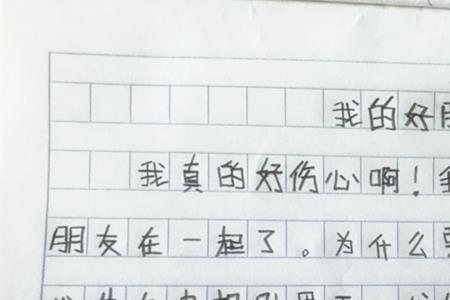 我的好朋
我真的好伤心啊！我
朋友在一起了。为什么要